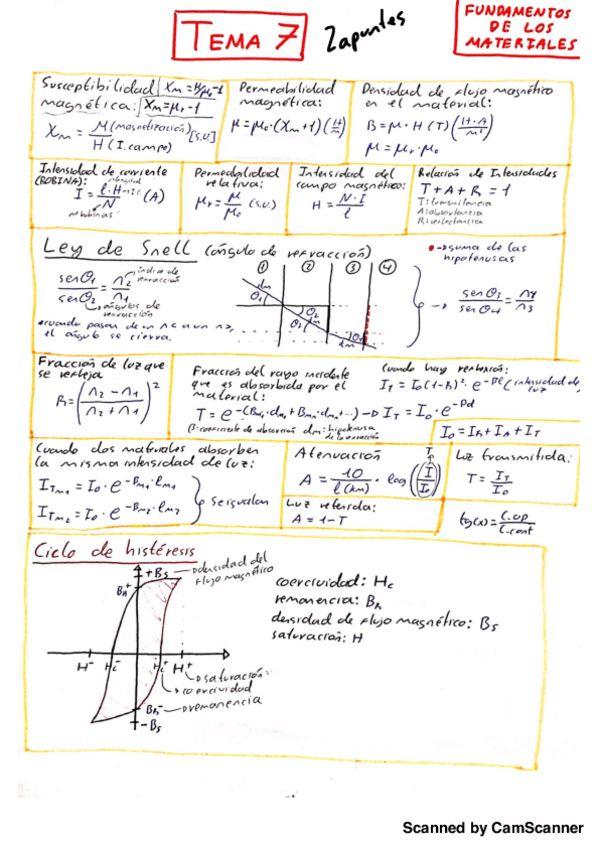 TEMA 7
Zapuntes
FUNDAMENTOS
DE LOS
MATERIALES
Susceptibilidad
magnética:
Xm = μ/μ₀ - 1
Xm = μr - 1
Xm = M (magnetización) / H (I. campo) [s.u.]
Permeabilidad
magnética:
μ = μ₀ · (Xm + 1) (H/m)
Densidad de flujo magnético
en el material:
B = μ · H (T) (H·A/m²)
μ = μr · μ₀
Intensidad de corriente
(BOBINA):
I = l · H / N (A)
nº bobinas
Permeabilidad
relativa:
μr = μ/μ₀ (s.u.)
Intensidad del
campo magnético:
H = N · I / l
Relación de Intensidades
T + A + R = 1
T: transmitancia
A: absortancia
R: reflectancia
Ley de Snell (ángulo de refracción)
senθ₁/senθ₂ = n₂/n₁
índice de
refracción
ángulos de
refracción
• cuando pasan de un n< a un n>,
el ángulo se cierra.
① ② ③ ④
dm
θ₁
θ₂
θ₃
dm
θ₄
• → suma de las
hipotenusas
senθ₃/senθ₄ = n₄/n₃
Fracción de luz que
se refleja
R = ((n₂ - n₁)/(n₂ + n₁))²
Fracción del rayo incidente
que es absorbida por el
material:
T = e^-(βm₁·dm₁ + βm₂·dm₂ + ...) → I_T = I₀ · e^-βd
β: coeficiente de absorción dm: hipotenusa
de la
Cuando hay reflexión:
I_T = I₀(1-R)² · e^-βl (intensidad de
luz
I₀ = I_R + I_A + I_T
Cuando dos materiales absorben
la misma intensidad de luz:
I_Tm₁ = I₀ · e^-βm₁·lm₁
I_Tm₂ = I₀ · e^-βm₂·lm₂
se igualan
Atenuación
A = 10/l(km) · log(I/I₀)
T
Luz retenida:
A = 1 - T
Luz transmitida:
T = I_T/I₀
tg(x) = C.op/C.cont
Ciclo de histéresis
+Bs
densidad del
flujo magnético
B_R⁺
H⁻
Hc⁻
Hc⁺
H⁺
saturación
coercividad
B_R⁻
remanencia
-Bs
coercividad: Hc
remanencia: B_R
densidad de flujo magnético: Bs
saturación: H
Scanned by CamScanner